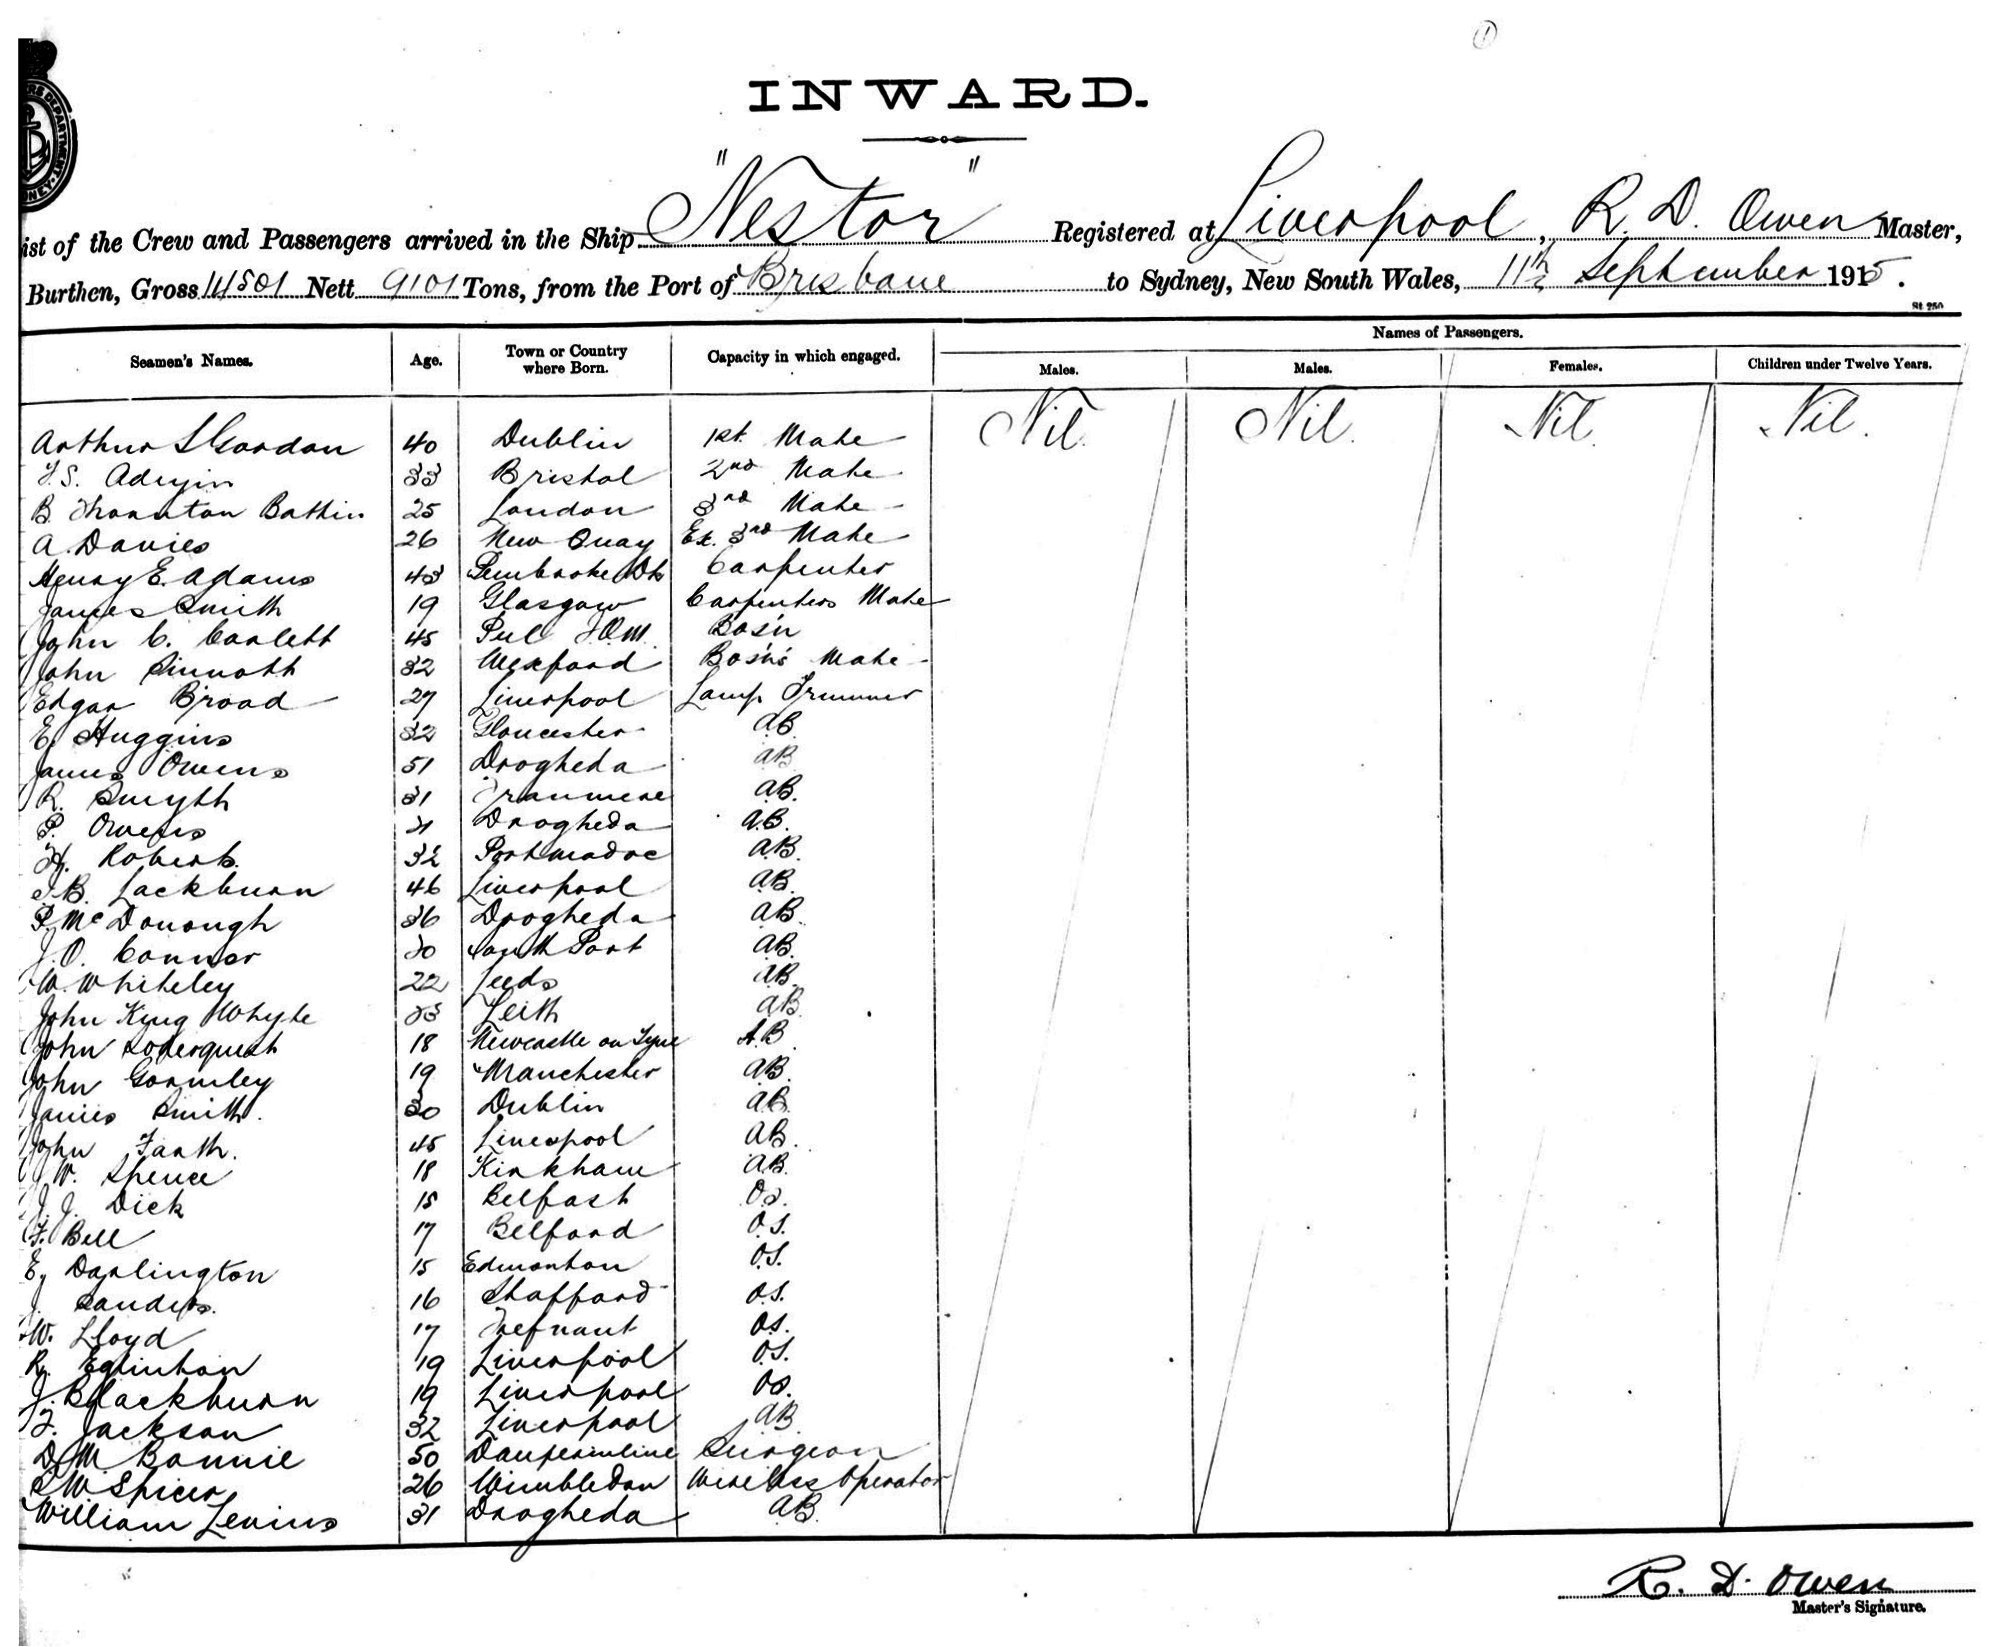 INWARD.
ist of the Crew and Passengers arrived in the Ship "Nestor" Registered at Liverpool, R. D. Owen Master,
Burthen, Gross 14501 Nett 9101 Tons, from the Port of Brisbane to Sydney, New South Wales, 11th September 1915.
St 250
Names of Passengers.
Seamen's Names. Age. Town or Country where Born. Capacity in which engaged. Males. Males. Females. Children under Twelve Years.
Nil. Nil. Nil. Nil.
Arthur L Gordon 40 Dublin 1st Mate
33 Bristol 2nd Mate
B. Thornton Battin 25 London 3rd Mate
A. Davies 26 New Quay Ex. 3rd Mate
Henry E. Adams 43 Pembroke Dk Carpenter
James Smith 19 Glasgow Carpenters Mate
John C. Corlett 45 Peel I.O.M. Bos'n
John Sinnott 32 Wexford Bos'n's Mate
Edgar Broad 27 Liverpool Lamp Trimmer
E. Huggins 32 Gloucester AB.
James Owens 51 Drogheda AB
R. Smyth 31 Tranmere AB.
P. Owens 21 Drogheda A.B.
H. Roberts. 32 Portmadoc AB.
J. B. Lackburn 46 Liverpool AB.
P. McDonough 36 Drogheda AB.
J. O. Connor 20 South Port AB.
W. Whiteley 22 Leeds AB.
John King Whyte 23 Leith AB.
John Soderquest 18 Newcastle on Tyne A.B.
John Gormley 19 Manchester AB.
James Smith. 30 Dublin AB.
John Farth. 45 Liverpool AB.
W. Spence 18 Kirkham AB.
J. J. Dick 15 Belfast Os.
F. Bell 17 Belford O.S.
E. Darlington 15 Edmonton O.S.
J. Sanders. 16 Stafford O.S.
W. Lloyd 17 Trefnant OS.
R. Eglinton 19 Liverpool O.S.
J. Blackburn 19 Liverpool Os.
J. Jackson 32 Liverpool AB.
D. M. Bonnie 50 Dunfermline Surgeon
S W Spicer 26 Wimbledon Wireless Operator
William Levins 31 Drogheda AB.
R. D. Owen
Master's Signature.